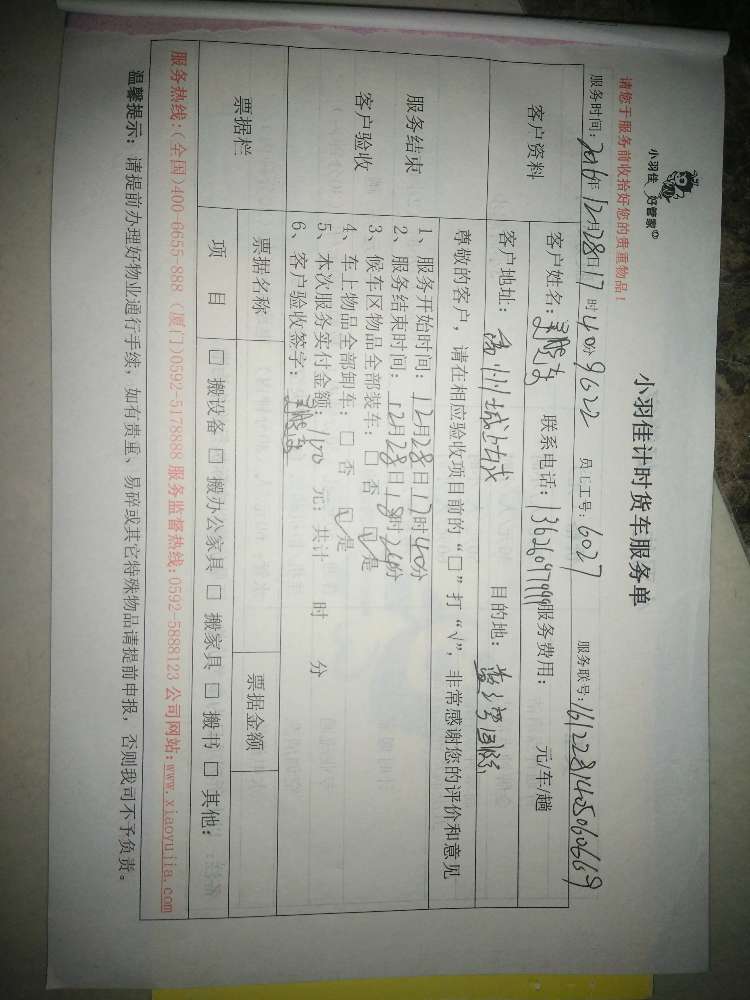 小羽佳 好管家
小羽佳计时货车服务单
请您于服务前收拾好您的贵重物品！
服务时间：2016年12月28日17时40分 9622 员工工号：6027 服务联号：161228140506066 9
客户资料
客户姓名： 联系电话：13626097999 服务费用： 元/车/趟
客户地址： 目的地： 国际
尊敬的客户，请在相应验收项目前的“□”打“√”，非常感谢您的评价和意见
服务结束
客户验收
1、服务开始时间：12月28日17时40分
2、服务结束时间：12月28日18时24分
3、候车区物品全部装车：□ 否 ☑ 是
4、车上物品全部卸车：□ 否 ☑ 是
5、本次服务实付金额：100 元；共计 时 分
6、客户验收签字：
票据栏
票据名称 票据金额
项 目 □ 搬设备 □ 搬办公家具 □ 搬家具 □ 搬书 □ 其他：
服务热线：(全国)400-6655-888 (厦门)0592-5178888 服务监督热线：0592-5888123 公司网站：www.xiaoyujia.com
温馨提示：请提前办理好物业通行手续，如有贵重、易碎或其它特殊物品请提前申报，否则我司不予负责。